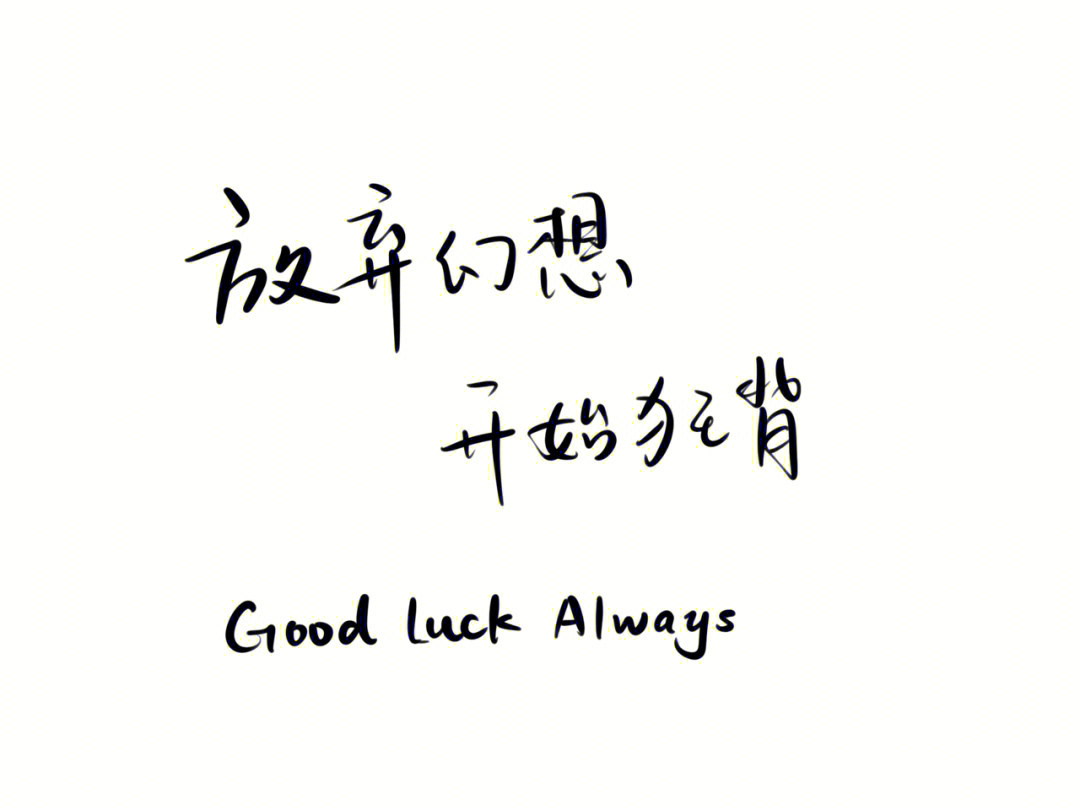 放弃幻想
开始狂背
Good Luck Always